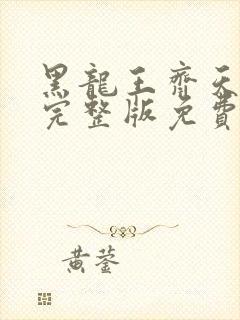 黑龍王齊天
完整版免費
黄蓥